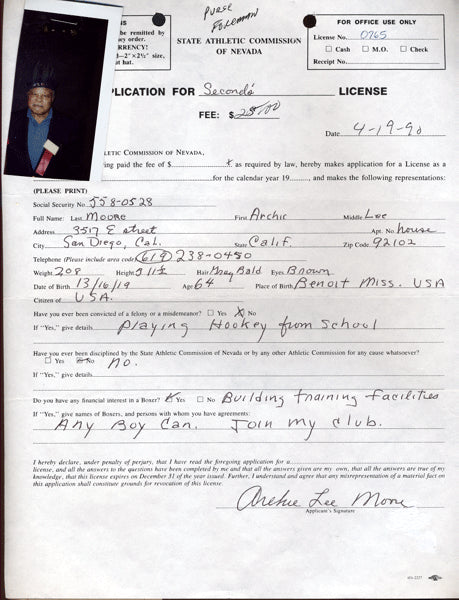 Purse
Foreman
be remitted by
ey order.
RRENCY!
—2"×2½" size,
ut hat.
STATE ATHLETIC COMMISSION
OF NEVADA
FOR OFFICE USE ONLY
License No. 0765
☐ Cash ☐ M.O. ☐ Check
Receipt No.
PLICATION FOR Seconds LICENSE
FEE: $25.00
Date 4-19-90
THLETIC COMMISSION OF NEVADA,
ing paid the fee of $ * as required by law, hereby makes application for a License as a
for the calendar year 19 , and makes the following representations:
(PLEASE PRINT)
Social Security No. 558-0528
Full Name: Last Moore First Archie Middle Lee
Address 3517 E street Apt. No. house
City San Diego, Cal. State Calif. Zip Code 92102
Telephone (Please include area code) (619) 238-0450
Weight 208 Height 5 11½ Hair Gray Bald Eyes Brown
Date of Birth 13/16/19 Age 64 Place of Birth Benoit Miss. USA
Citizen of USA.
Have you ever been convicted of a felony or a misdemeanor? ☐ Yes ☒ No
If "Yes," give details Playing Hookey from School
Have you ever been disciplined by the State Athletic Commission of Nevada or by any other Athletic Commission for any cause whatsoever?
☐ Yes ☒ No no.
If "Yes," give details
Do you have any financial interest in a Boxer? ☒ Yes ☐ No Building training facilities
If "Yes," give names of Boxers, and persons with whom you have agreements:
Any Boy Can. Join my club.
I hereby declare, under penalty of perjury, that I have read the foregoing application for a
license, and all the answers to the questions have been completed by me and that all the answers given are my own, that all the answers are true of my
knowledge, that this license expires on December 31 of the year issued. Further, I understand and agree that any misrepresentation of a material fact on
this application shall constitute grounds for revocation of this license.
Archie Lee Moore
Applicant's Signature